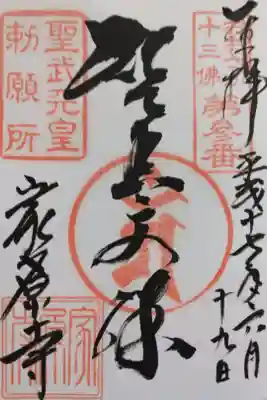 奉拝
平成十七年六月
十九日
十三佛 第参番
智恵文殊
聖武天皇
勅願所
家原寺